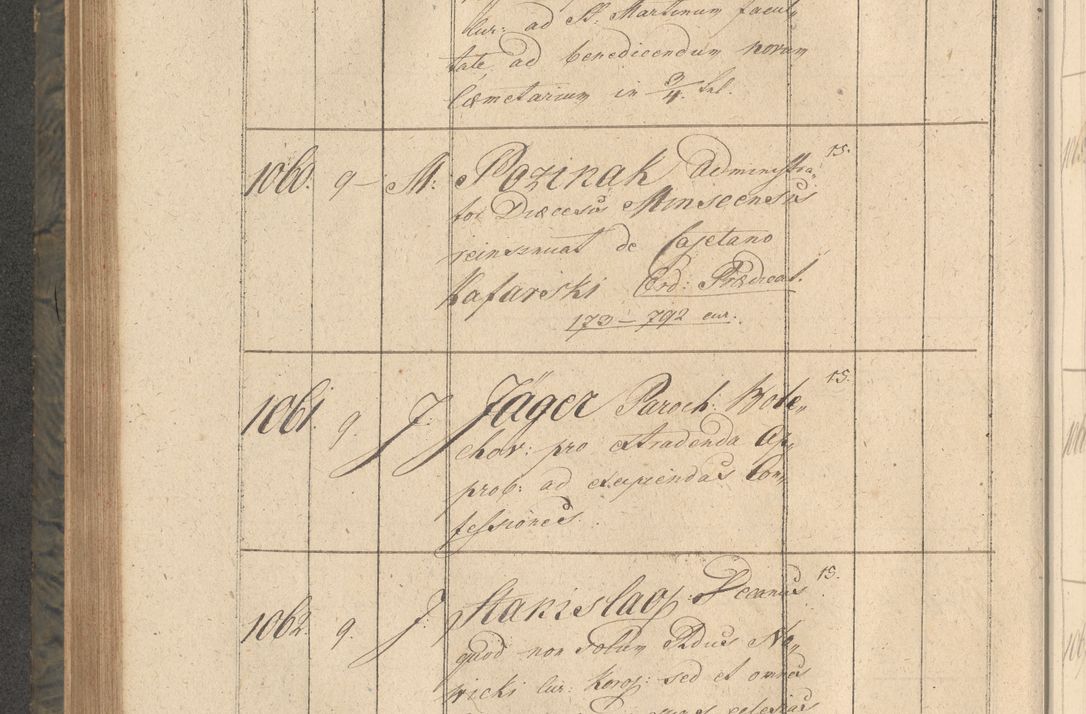 Cur: ad St. Martinum facul„
tate ad benedicendum novam
Cæmetarium in 3/4. Sel.
1060. 9 — M: Pozinak Administra„ 15.
tor Diœcesis Minscensis
reinsinuat de Cajetano
Kafarski Ord: Prædicat.
173 — 792 cur.
1061. 9. J. Jäger Paroch: Bole„ 15.
chov: pro extradenda Ap„
prob: ad excipiendas Con„
fessiones.
1062. 9. J. Stanislaop: Decanus 15.
quod non solum Rdus No„
wicki Cur: Korop: sed et omnes